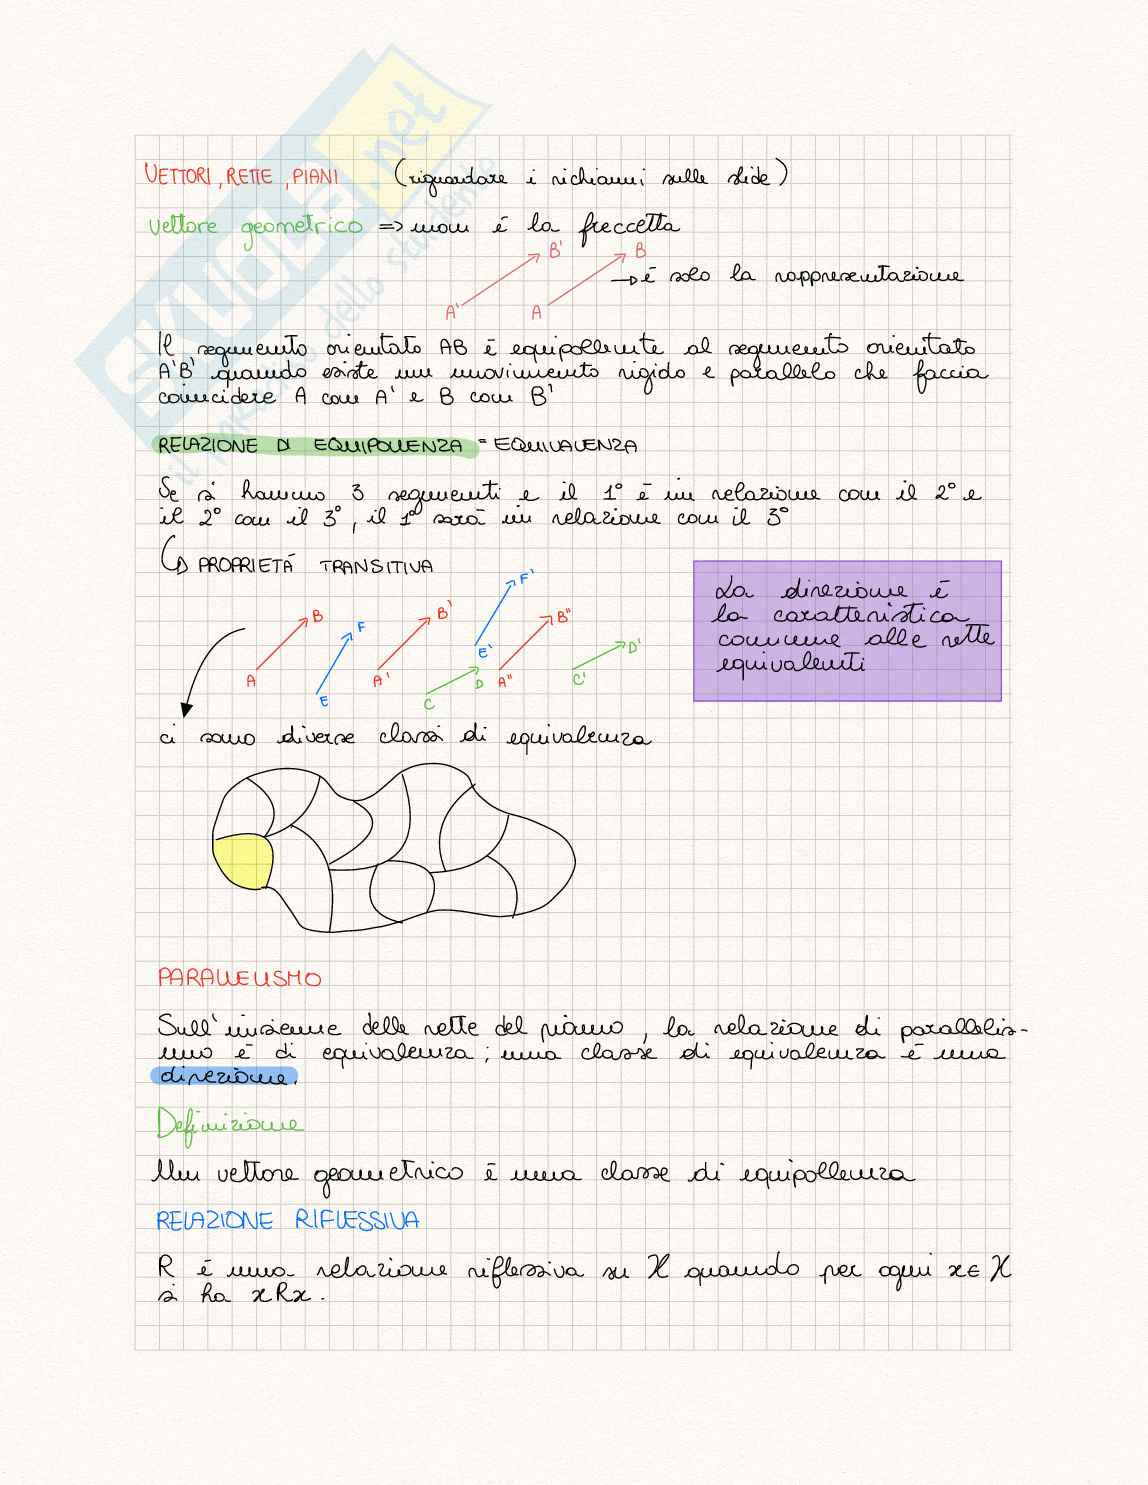 VETTORI, RETTE, PIANI (riguardare i richiami sulle slide)
vettore geometrico => non è la freccetta
B' B
→ è solo la rappresentazione
A' A
Il segmento orientato AB è equipollente al segmento orientato
A'B' quando esiste un movimento rigido e parallelo che faccia
coincidere A con A' e B con B'
RELAZIONE DI EQUIPOLLENZA = EQUIVALENZA
Se si hanno 3 segmenti e il 1° è in relazione con il 2° e
il 2° con il 3°, il 1° sarà in relazione con il 3°
↳ PROPRIETÁ TRANSITIVA
La direzione è
la caratteristica
comune alle rette
equivalenti
B F B' F' B" D'
A E A' C D E' A" C'
ci sono diverse classi di equivalenza
PARALLELISMO
Sull'insieme delle rette del piano, la relazione di parallelis-
mo è di equivalenza; una classe di equivalenza è una
direzione.
Definizione
Un vettore geometrico è una classe di equipollenza
RELAZIONE RIFLESSIVA
R è una relazione riflessiva su X quando per ogni x ∈ X
si ha xRx.
SKUOLA.net
il paradiso dello studente